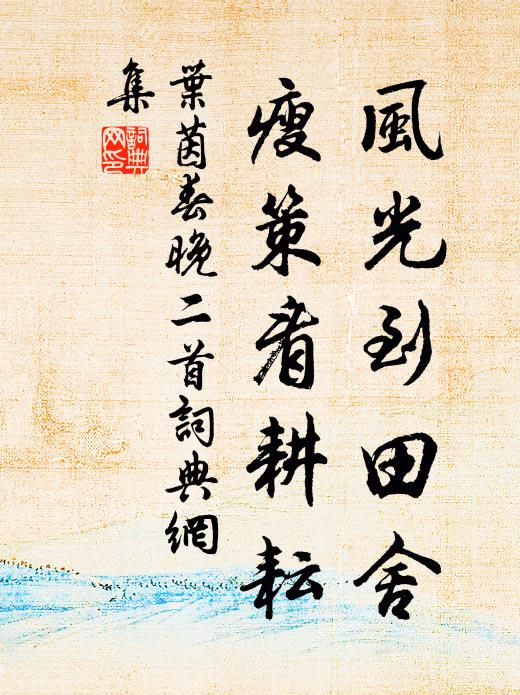 風光到田舍
瘦策看耕耘
葉茵春晚二首詞典網
集
詞典
网印